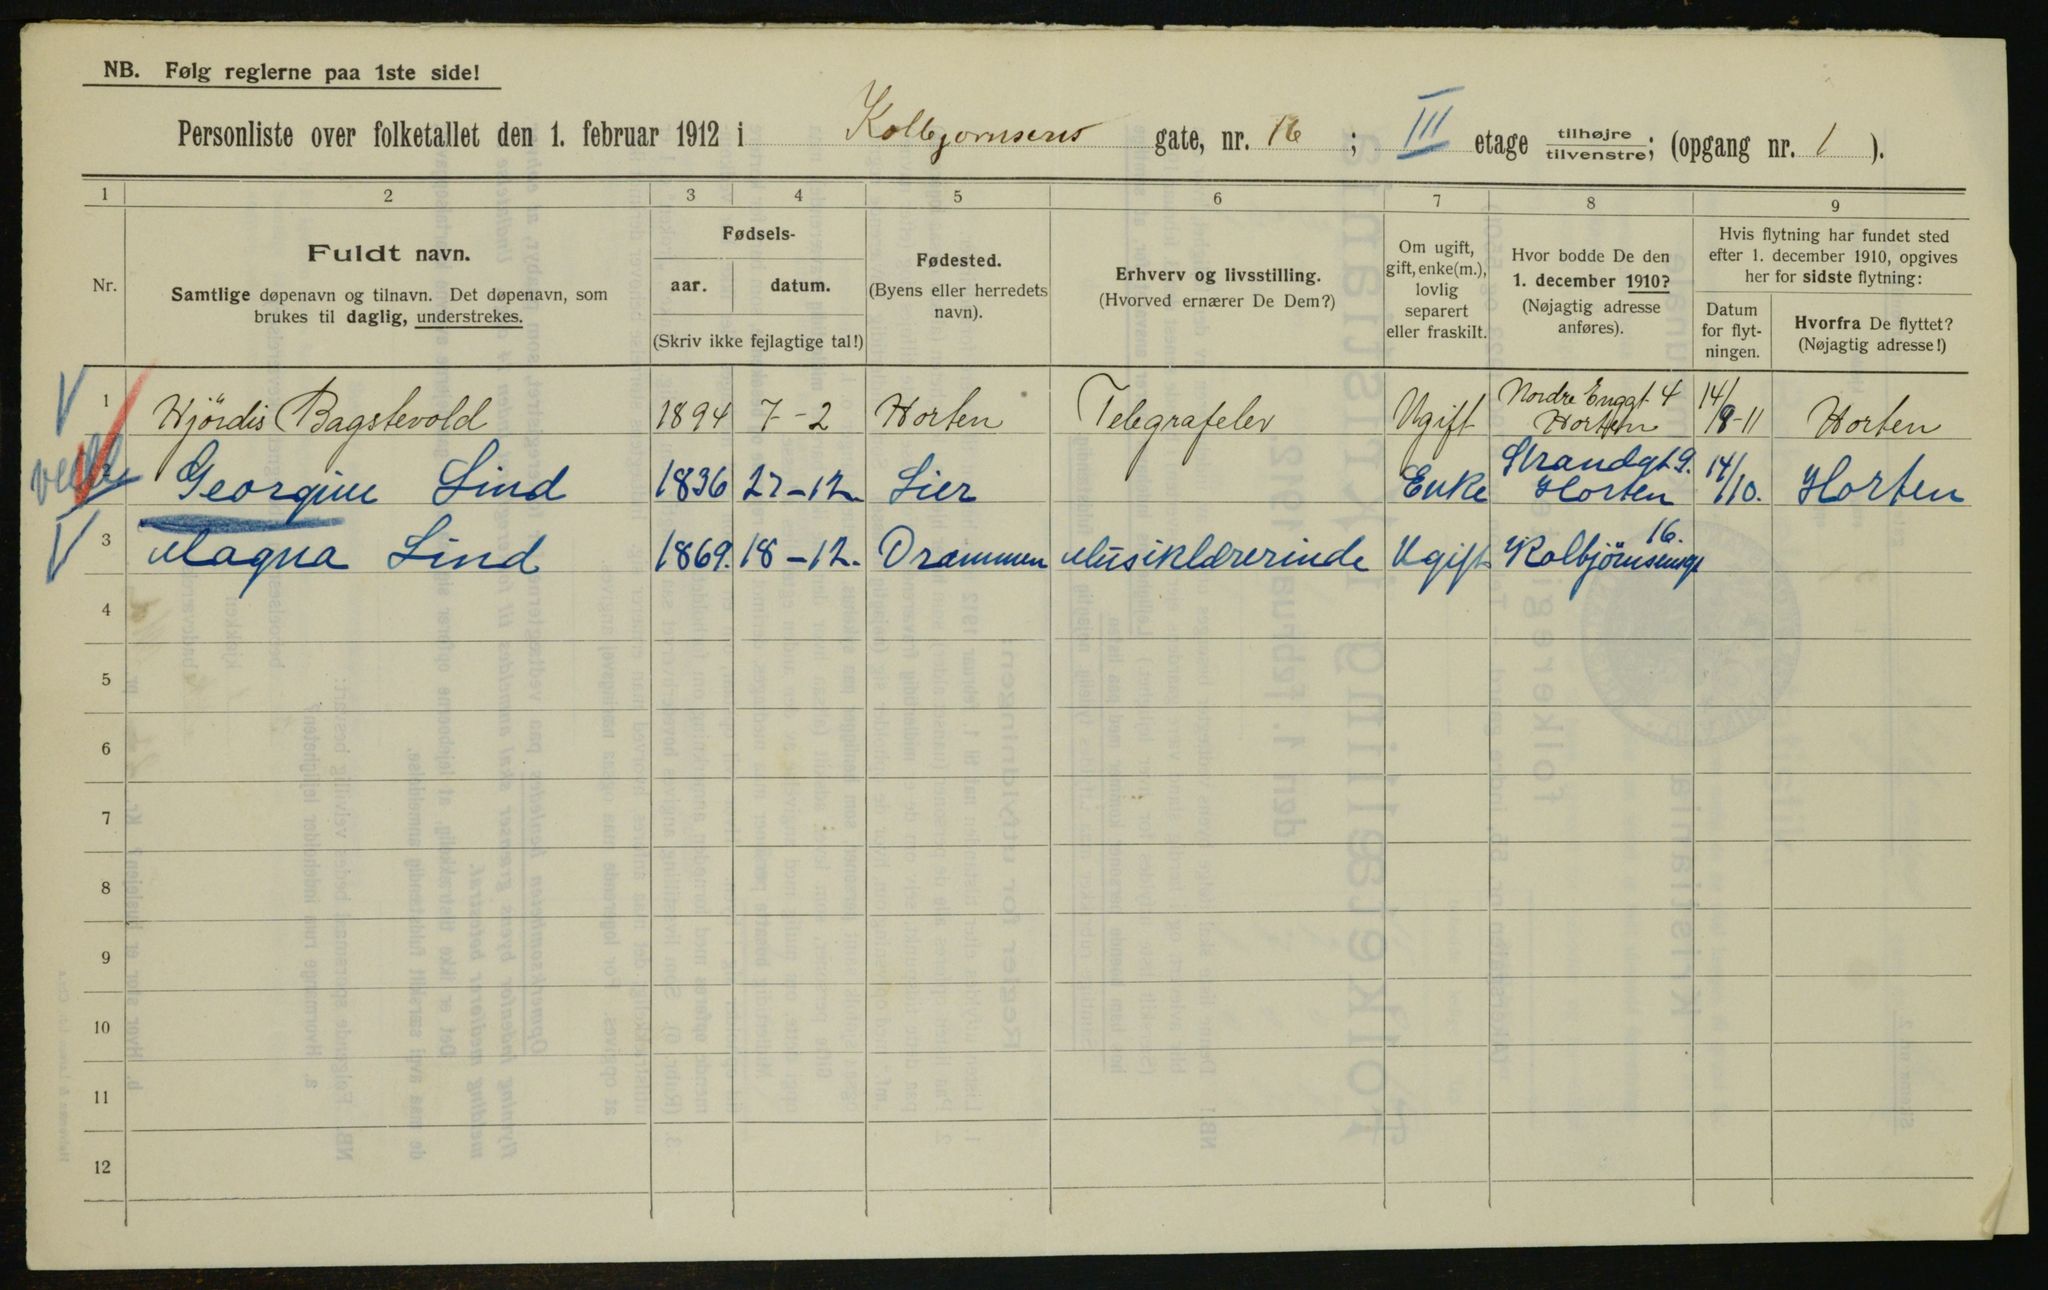 NB. Følg reglerne paa 1ste side!
Personliste over folketallet den 1. februar 1912 i Kolbjørnsens gate, nr. 16 ; III etage tilhøjre tilvenstre; (opgang nr. 1 ).
1 2 3 4 5 6 7 8 9
Nr.
Fuldt navn.
Samtlige døpenavn og tilnavn. Det døpenavn, som
brukes til daglig, understrekes.
Fødsels-
aar. datum.
(Skriv ikke fejlagtige tal!)
Fødested.
(Byens eller herredets
navn).
Erhverv og livsstilling.
(Hvorved ernærer De Dem?)
Om ugift,
gift, enke(m.),
lovlig
separert
eller fraskilt.
Hvor bodde De den
1. december 1910?
(Nøjagtig adresse
anføres).
Hvis flytning har fundet sted
efter 1. december 1910, opgives
her for sidste flytning:
Datum
for flyt-
ningen.
Hvorfra De flyttet?
(Nøjagtig adresse!)
1 Hjördis Bagstevold 1894 7-2 Horten Telegrafelev Ugift Nordre Enggt 4 Horten 14/8-11 Horten
2 Georgine Lind 1836 27-12 Lier Enke Strandgt. 9. Horten 14/10. Horten
3 Magna Lind 1869. 18-12. Drammen Musiklærerinde Ugift Kolbjørnsensgt 16.
4
5
6
7
8
9
10
11
12